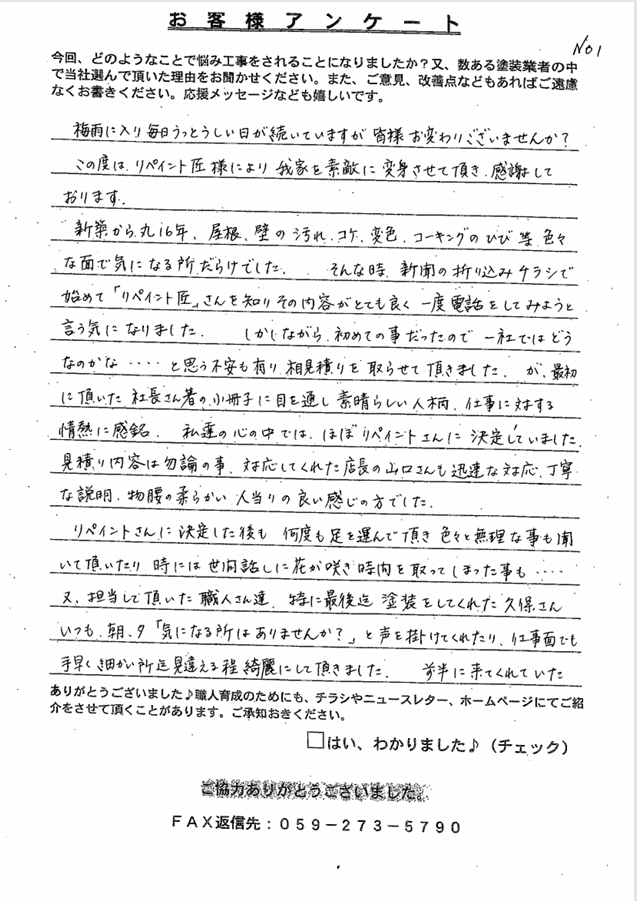 お客様アンケート
No1
今回、どのようなことで悩み工事をされることになりましたか？又、数ある塗装業者の中
で当社選んで頂いた理由をお聞かせください。また、ご意見、改善点などもあればご遠慮
なくお書きください。応援メッセージなども嬉しいです。
梅雨に入り毎日うっとうしい日が続いていますが皆様お変わりございませんか？
この度は、リペイント匠様により我家を素敵に変身させて頂き、感謝して
おります。
新築から丸16年、屋根、壁の汚れ、コケ、変色、コーキングのひび等、色々
な面で気になる所だらけでした。そんな時、新聞の折り込みチラシで
始めて「リペイント匠」さんを知りその内容がとても良く一度電話をしてみようと
言う気になりました。しかしながら、初めての事だったので一社ではどう
なのかな・・・・と思う不安も有り、相見積りを取らせて頂きました。が、最初
に頂いた社長さん著の小冊子に目を通し素晴らしい人柄、仕事に対する
情熱に感銘、私達の心の中では、ほぼリペイントさんに決定していました。
見積り内容は勿論の事、対応してくれた店長の山口さんも迅速な対応、丁寧
な説明、物腰の柔らかい人当りの良い感じの方でした。
リペイントさんに決定した後も何度も足を運んで頂き色々と無理な事も聞
いて頂いたり時には世間話しに花が咲き時間を取ってしまった事も・・・・
又、担当して頂いた職人さん達、特に最後迄塗装をしてくれた久保さん
いつも、朝、夕「気になる所はありませんか？」と声を掛けてくれたり、仕事面でも
手早く細かい所迄見違える程綺麗にして頂きました。前半に来てくれていた
ありがとうございました♪職人育成のためにも、チラシやニュースレター、ホームページにてご紹
介をさせて頂くことがあります。ご承知おきください。
□はい、わかりました♪（チェック）
ご協力ありがとうございました。
ＦＡＸ返信先：０５９－２７３－５７９０